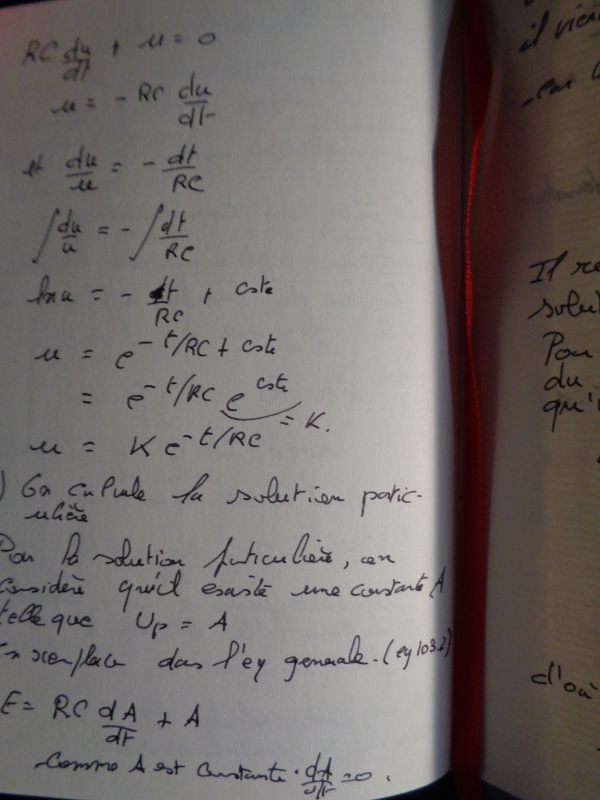 RC du/dt + u = 0
u = - RC du/dt
et du/u = - dt/RC
∫ du/u = - ∫ dt/RC
ln u = - t/RC + cste
u = e^{-t/RC + cste}
= e^{-t/RC} e^{cste} = K.
u = K e^{-t/RC}
) On calcule la solution partic-
ulière
Pour la solution particulière, on
considère qu'il existe une constante A
telle que Up = A
En remplace dans l'eq generale. (eq 103.2)
E = RC dA/dt + A
Comme A est constante. dA/dt = 0.
il vien
car
Il re
solut
Pou
du
qu'
d'où